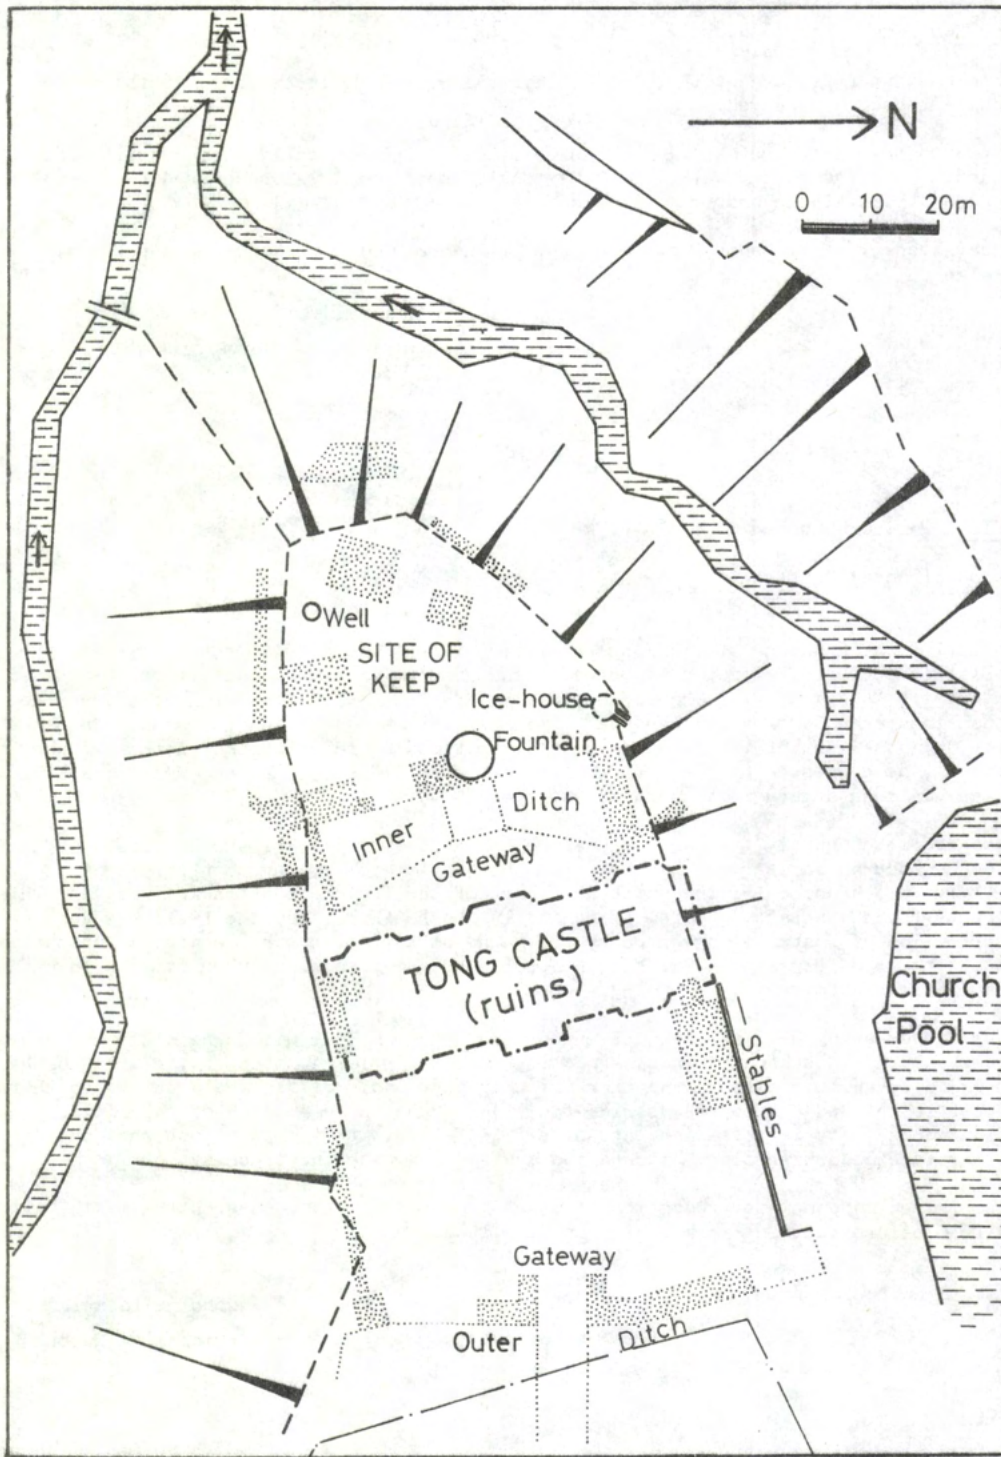 N
0 10 20m
Well
SITE OF
KEEP
Ice-house
Fountain
Ditch
Inner
Gateway
TONG CASTLE
(ruins)
Church
Pool
Stables
Gateway
Outer
Ditch